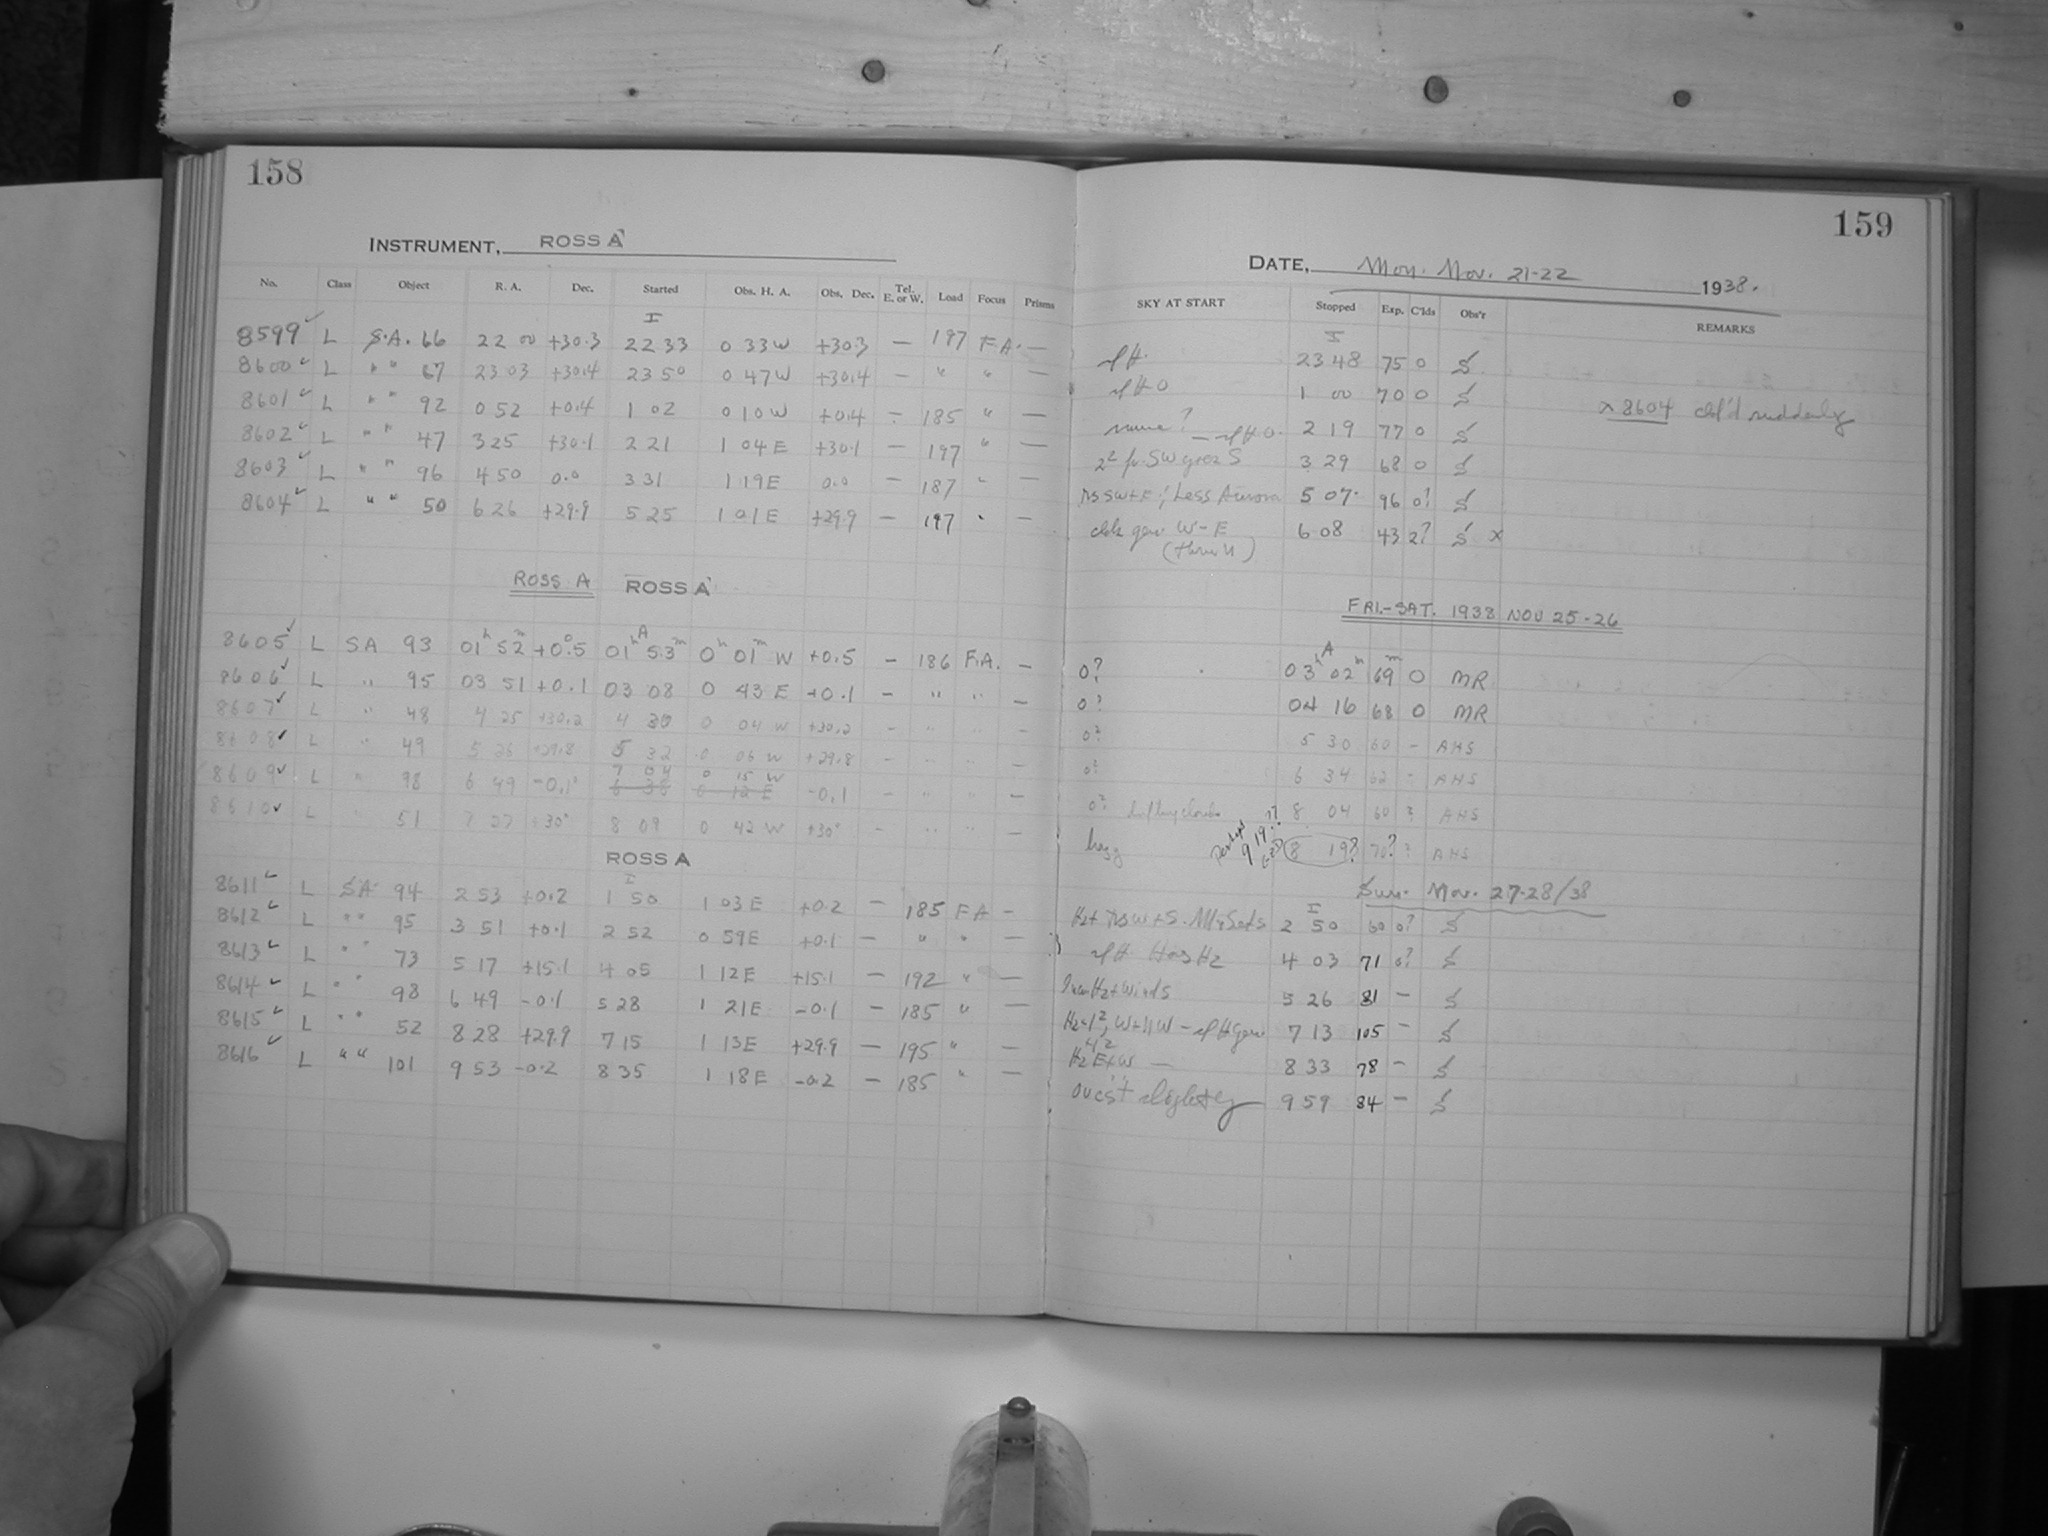 158
INSTRUMENT, ROSS A
No. Class Object R. A. Dec. Started Obs. H. A. Obs. Dec. Tel. E. or W. Load Focus Prisms
I
8599 ✓ L S.A. 66 22 00 +30.3 22 33 0 33 W +30.3 — 197 F.A. —
8600 ✓ L " " 67 23 03 +30.4 23 50 0 47 W +30.4 — " " —
8601 ✓ L " " 92 0 52 +0.4 1 02 0 10 W +0.4 — 185 " —
8602 ✓ L " " 47 3 25 +30.1 2 21 1 04 E +30.1 — 197 " —
8603 ✓ L " " 96 4 50 0.0 3 31 1 19 E 0.0 — 187 " —
8604 ✓ L " " 50 6 26 +29.9 5 25 1 01 E +29.9 — 197 " —
ROSS A ROSS A
8605 ✓ L SA 93 01h 52m +0°.5 01h 53m A 0h 01m W +0.5 — 186 F.A. —
8606 ✓ L " 95 03 51 +0.1 03 08 0 43 E +0.1 — " " —
8607 ✓ L " 48 4 25 +30.2 4 30 0 04 W +30.2 — " " —
8608 ✓ L " 49 5 26 +29.8 5 32 0 06 W +29.8 — " " —
7 04 0 15 W
8609 ✓ L " 98 6 49 -0.1° 6 38 0 12 E -0.1 — " " —
8610 ✓ L " 51 7 27 +30° 8 09 0 42 W +30° — " " —
ROSS A
I
8611 ✓ L S.A. 94 2 53 +0.2 1 50 1 03 E +0.2 — 185 F A —
8612 ✓ L " " 95 3 51 +0.1 2 52 0 59 E +0.1 — " " —
8613 ✓ L " " 73 5 17 +15.1 4 05 1 12 E +15.1 — 192 " —
8614 ✓ L " " 98 6 49 -0.1 5 28 1 21 E -0.1 — 185 " —
8615 ✓ L " " 52 8 28 +29.9 7 15 1 13 E +29.9 — 195 " —
8616 ✓ L " " 101 9 53 -0.2 8 35 1 18 E -0.2 — 185 " —
159
DATE, Mon. Nov. 21-22 1938.
SKY AT START Stopped Exp. C'lds Obs'r REMARKS
I
23 48 75 0 S
1 00 70 0 S x 8604 cld'd suddenly
2 19 77 0 S
3 29 68 0 S
Less Aurora 5 07 96 0? S
W - E 6 08 43 2? S x
FRI.-SAT. 1938 NOV 25-26
A
0? 03h 02m 69m 0 MR
0? 04 16 68 0 MR
0? 5 30 60 - AHS
0? 6 34 62 - AHS
0? 8 04 60 ? AHS
hazy perhaps 9 19?? 8 19? 70? ? AHS
Sun. Nov. 27-28/38
I
Hz + W + S. 2 50 60 0? S
Hz 4 03 71 0? S
Hz + Winds 5 26 81 — S
7 13 105 — S
8 33 78 — S
ovcst slightly 9 59 84 — S